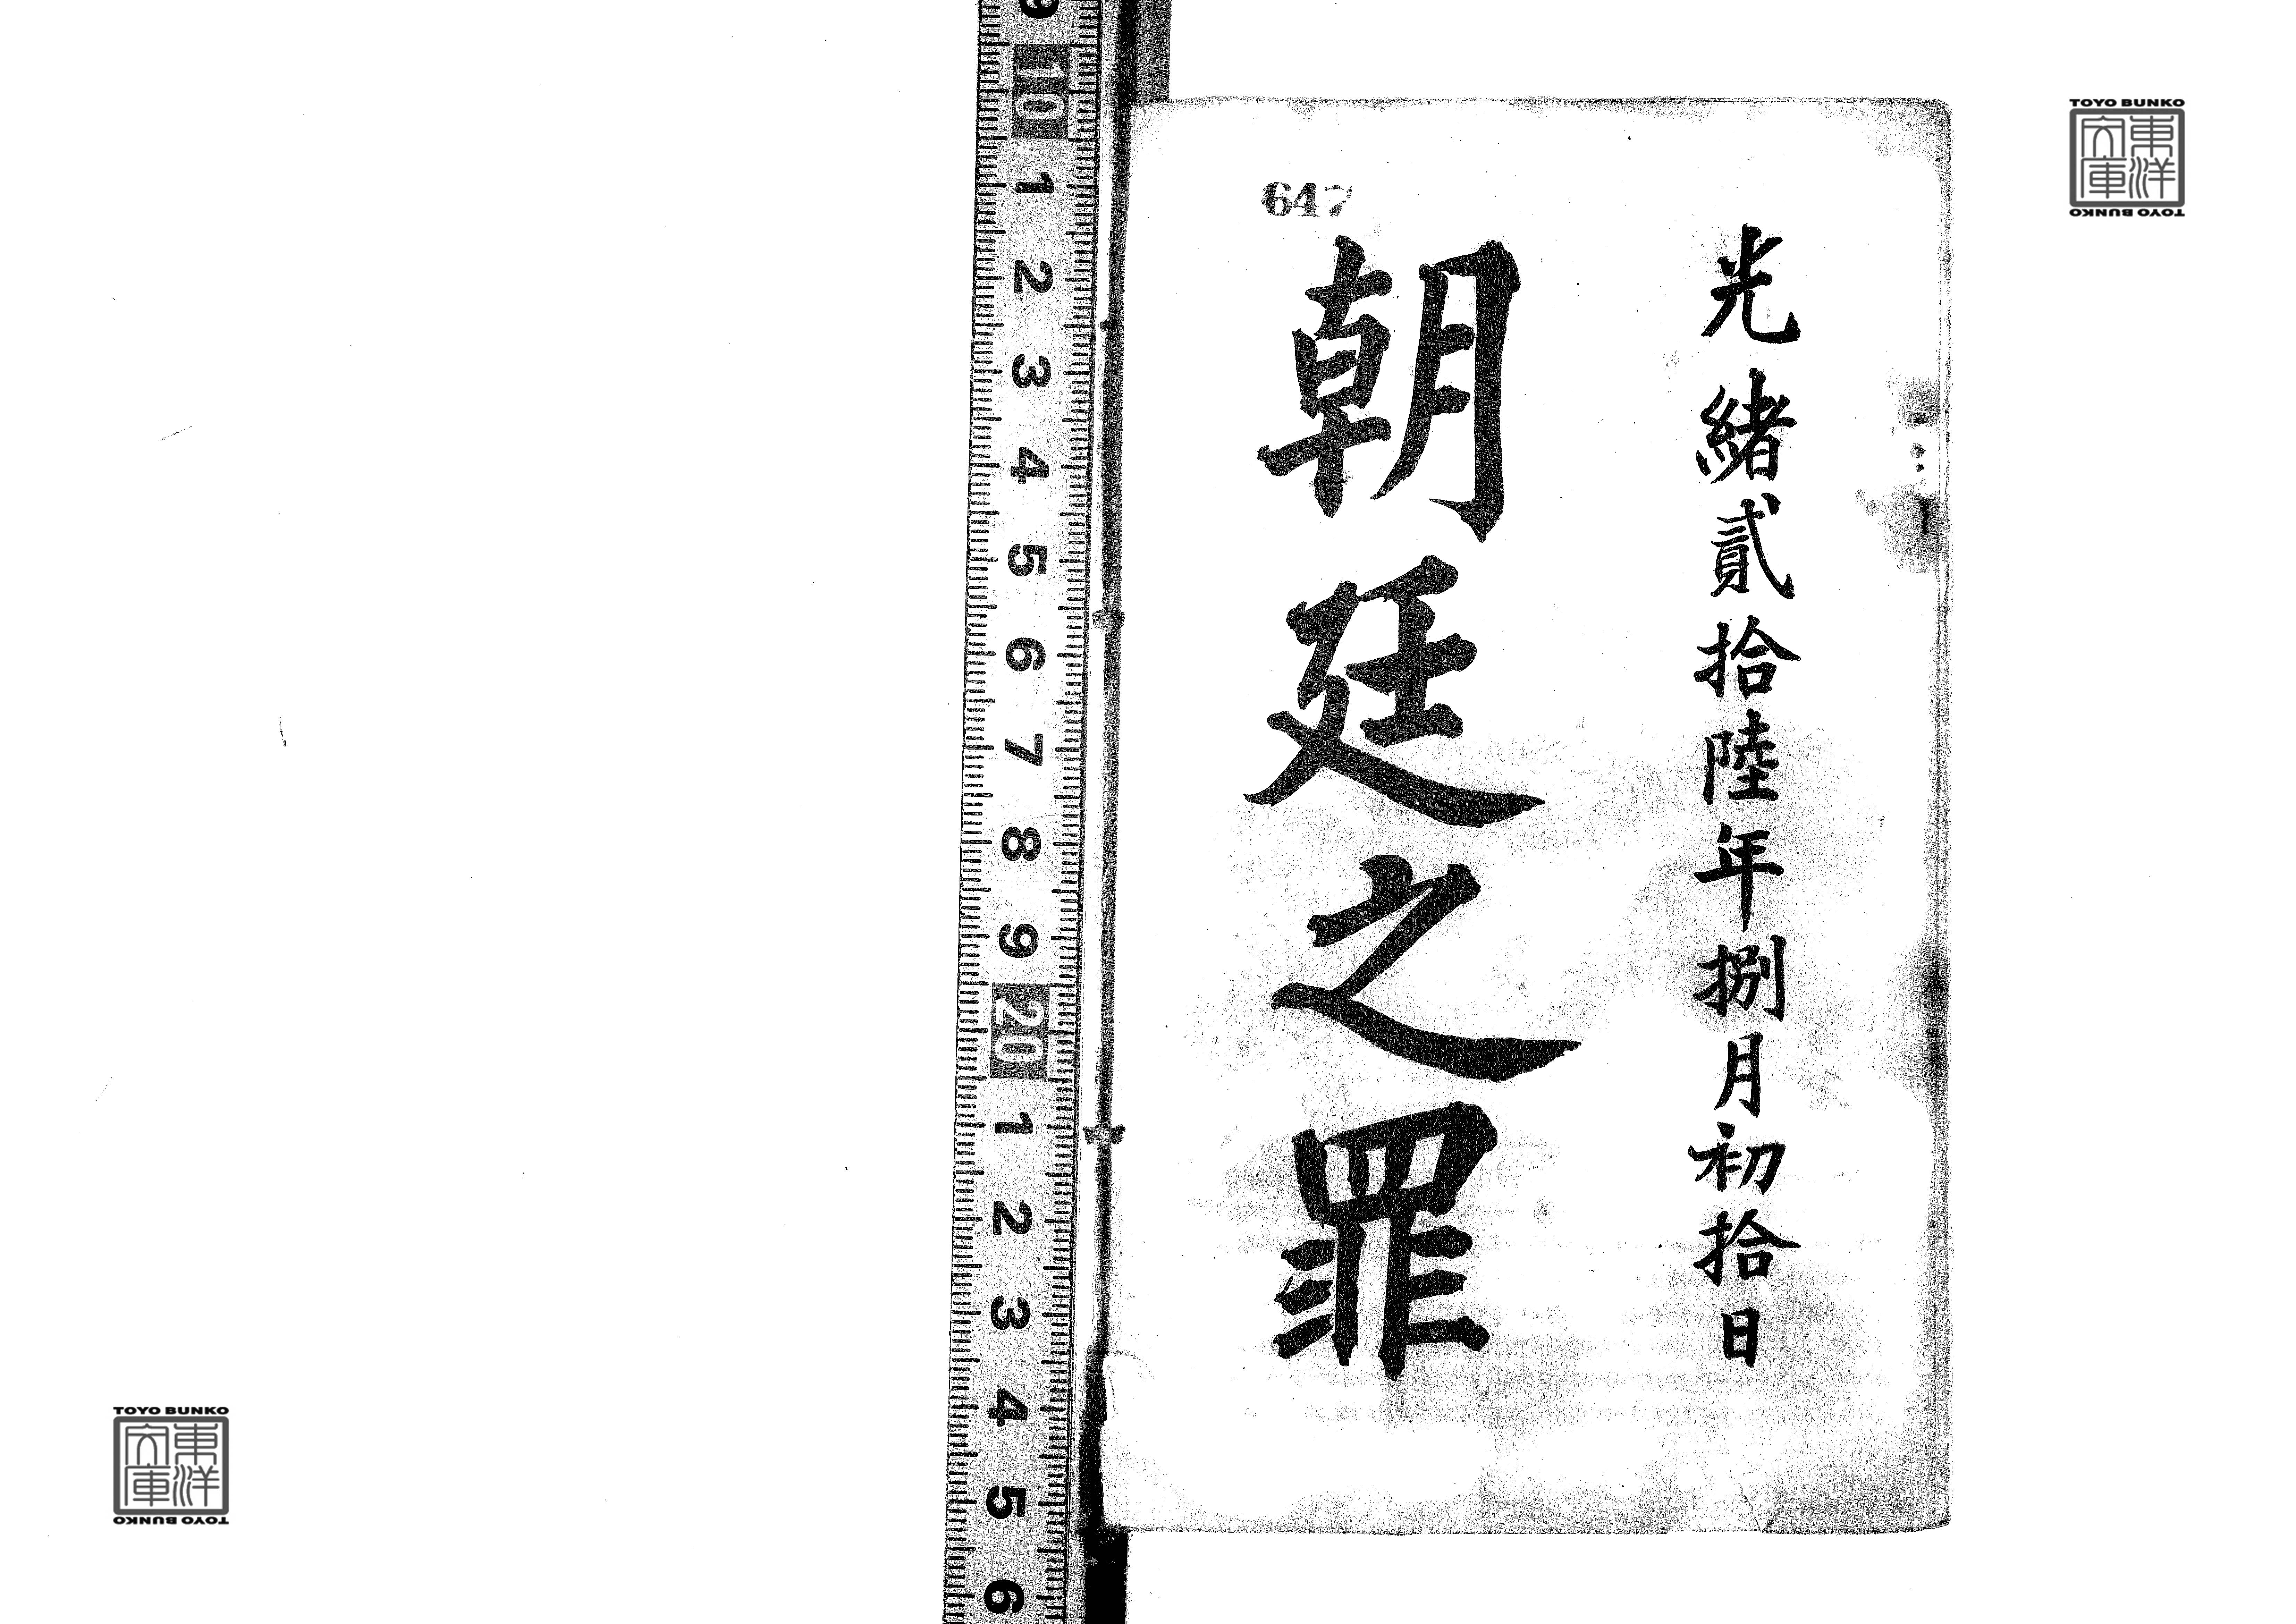 光緒貳拾陸年捌月初拾日
朝廷之罪
647
9 10 1 2 3 4 5 6 7 8 9 20 1 2 3 4 5 6
TOYO BUNKO
東洋文庫
TOYO BUNKO
TOYO BUNKO
東洋文庫
TOYO BUNKO